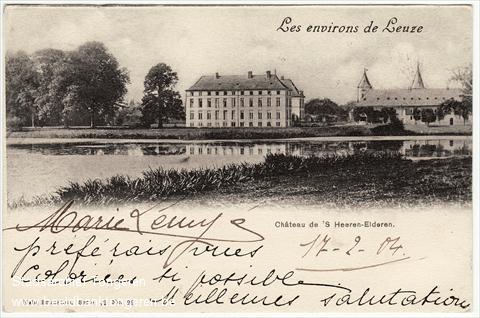 Les environs de Leuze
Château de 'S Heeren-Elderen.
Marie
17-2-04
préférais vues
Colorées si possible
Meilleures salutation